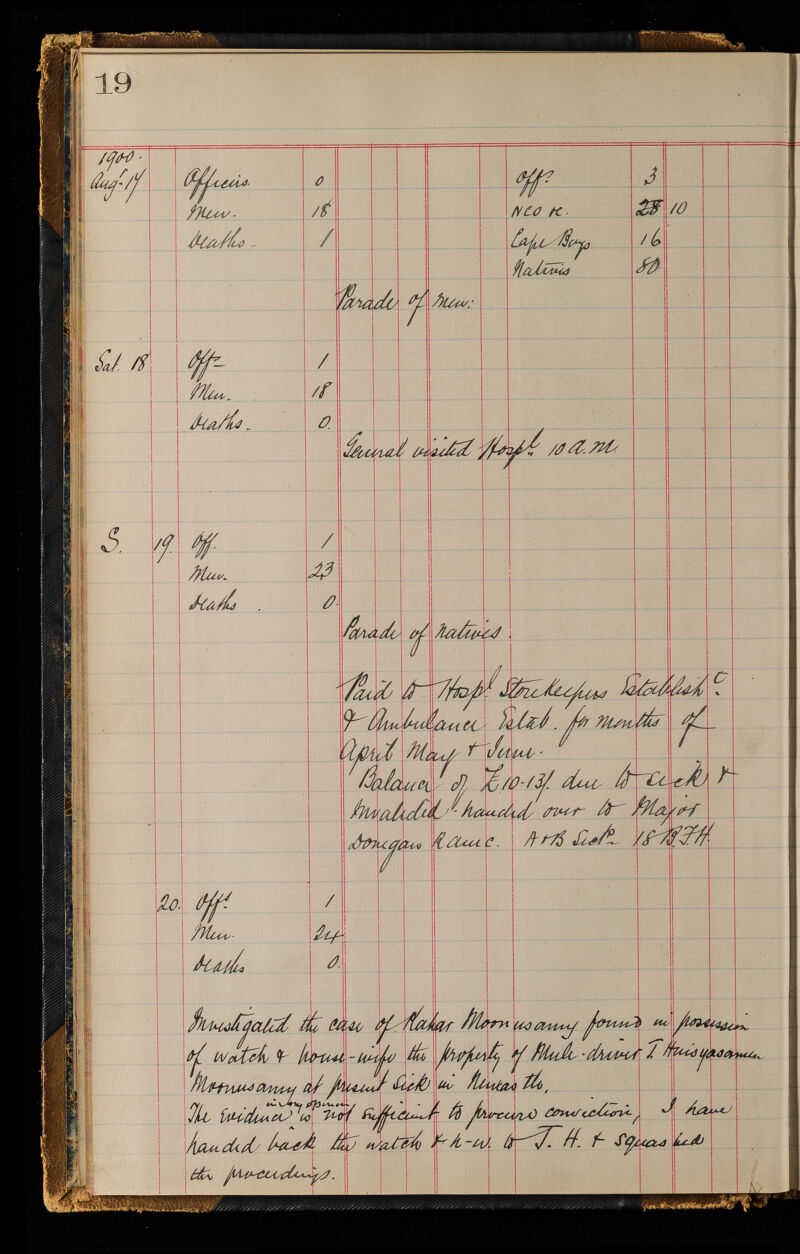 19
1900.
Augt 17 Officers 0 Offs 3
Men. 18 NCO &c. 28 10
Deaths - 1 Cape Boys 16
Natives 80
Parade of Men:
Sat. 18 Offs - 1
Men. 18
Deaths - 0.
General visited Hospl. 10 a.m.
S. 19. Off. 1
Men. 23
Deaths . 0.
Parade of Natives.
Paid to Hospl Storekeepers Establisht.
& Ambulance Estab. for months of
April May & June.
Balance of £10-13/. due to sick &
Invalided - handed over to Major
Donegan RAMC. A & B Sectn 18 B.F.H.
20. Offs 1
Men. 24
Deaths 0.
Investigated the case of Kahar Moonusamy found in possession
of watch & house-wife the property of Mule-driver T.
Moonusamy at present sick in Newcastle.
in my opinion
The Evidence is not sufficient to procure conviction, I have
handed back the watch & h-w. to J. H. & squashed
the proceedings.